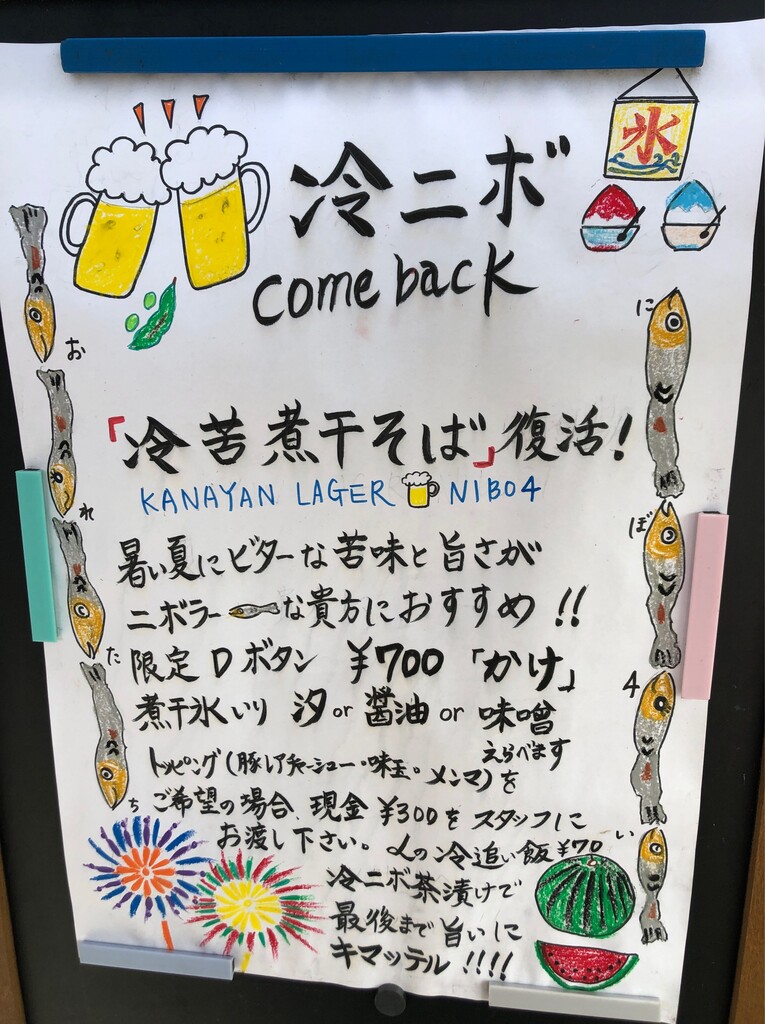 氷
冷ニボ
come back
「冷苦煮干そば」復活!
KANAYAN LAGER NIBO4
暑い夏にビターな苦味と旨さが
ニボラーな貴方におすすめ!!
限定Dボタン ¥700「かけ」
煮干氷いり 汐or醤油or味噌
えらべます
トッピング(豚レアチャーシュー・味玉・メンマ)を
ご希望の場合、現金¥300をスタッフに
お渡し下さい。〆の冷追い飯¥70
冷ニボ茶漬けで
最後まで旨いに
キマッテル!!!!
お
れ
た
ち
に
ぼ
4
い